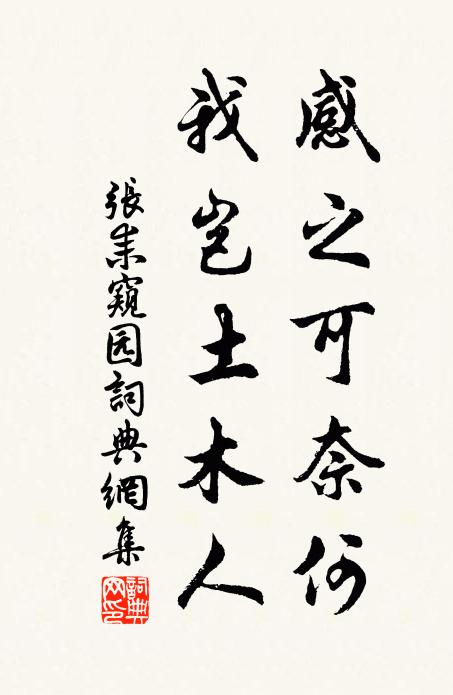 感之可奈何
我岂土木人
張耒窺园詞典網集
詞典网印